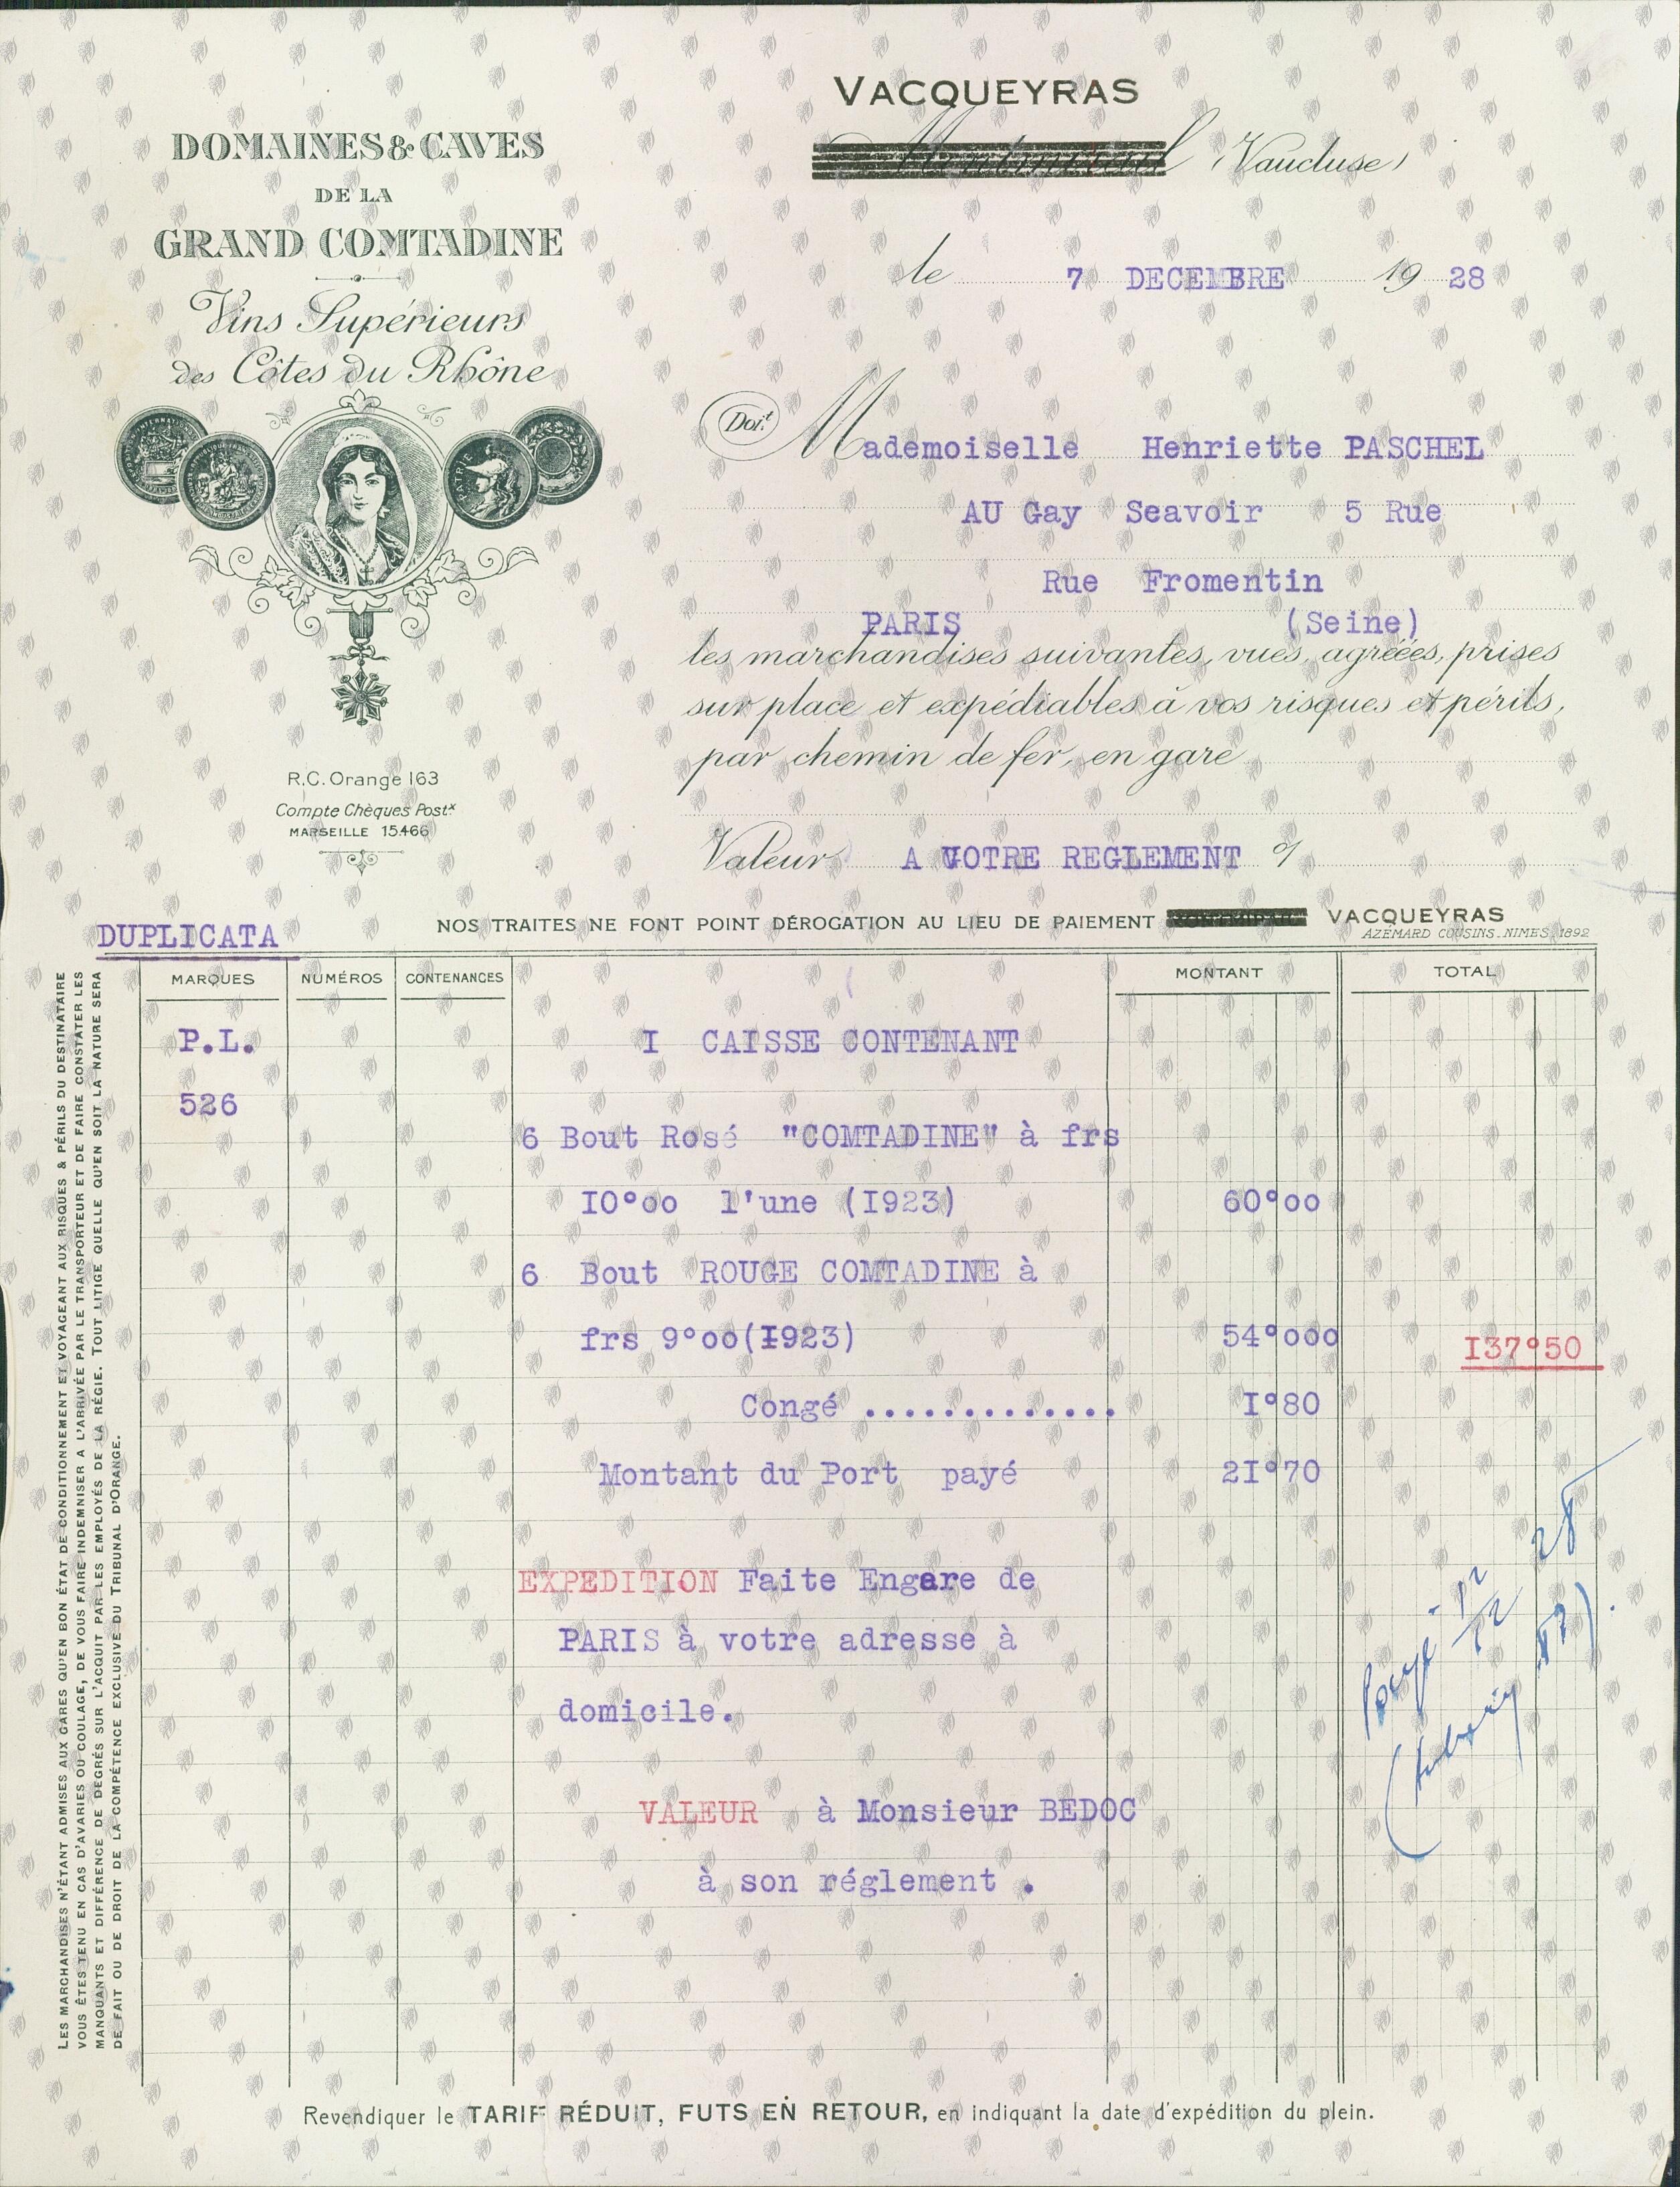 VACQUEYRAS
(Vaucluse)
DOMAINES & CAVES
DE LA
GRAND COMTADINE
Vins Supérieurs
des Côtes du Rhône
PATRIE
R.C. Orange 163
Compte Chèques Post.x
MARSEILLE 15466
le 7 DECEMBRE 19 28
Doit Mademoiselle Henriette PASCHEL
AU Gay Seavoir 5 Rue
Rue Fromentin
PARIS (Seine)
les marchandises suivantes, vues, agréées, prises
sur place et expédiables à vos risques et périls,
par chemin de fer, en gare
Valeur A VOTRE REGLEMENT
DUPLICATA
NOS TRAITES NE FONT POINT DÉROGATION AU LIEU DE PAIEMENT VACQUEYRAS
AZÉMARD COUSINS. NIMES. 1892
MARQUES NUMÉROS CONTENANCES MONTANT TOTAL
P.L. I CAISSE CONTENANT
526
6 Bout Rosé "COMTADINE" à frs
I0°oo l'une (I923) 60°oo
6 Bout ROUGE COMTADINE à
frs 9°oo(I923) 54°ooo I37°50
Congé ............. I°80
Montant du Port payé 2I°70
EXPEDITION Faite Engare de
PARIS à votre adresse à
domicile.
VALEUR à Monsieur BEDOC
à son réglement .
payé 12/12 28
LES MARCHANDISES N'ÉTANT ADMISES AUX GARES QU'EN BON ÉTAT DE CONDITIONNEMENT ET VOYAGEANT AUX RISQUES & PÉRILS DU DESTINATAIRE
VOUS ÊTES TENU EN CAS D'AVARIES OU COULAGE, DE VOUS FAIRE INDEMNISER A L'ARRIVÉE PAR LE TRANSPORTEUR ET DE FAIRE CONSTATER LES
MANQUANTS ET DIFFÉRENCE DE DEGRÉS SUR L'ACQUIT PAR LES EMPLOYÉS DE LA RÉGIE. TOUT LITIGE QUELLE QU'EN SOIT LA NATURE SERA
DE FAIT OU DE DROIT DE LA COMPÉTENCE EXCLUSIVE DU TRIBUNAL D'ORANGE.
Revendiquer le TARIF RÉDUIT, FUTS EN RETOUR, en indiquant la date d'expédition du plein.